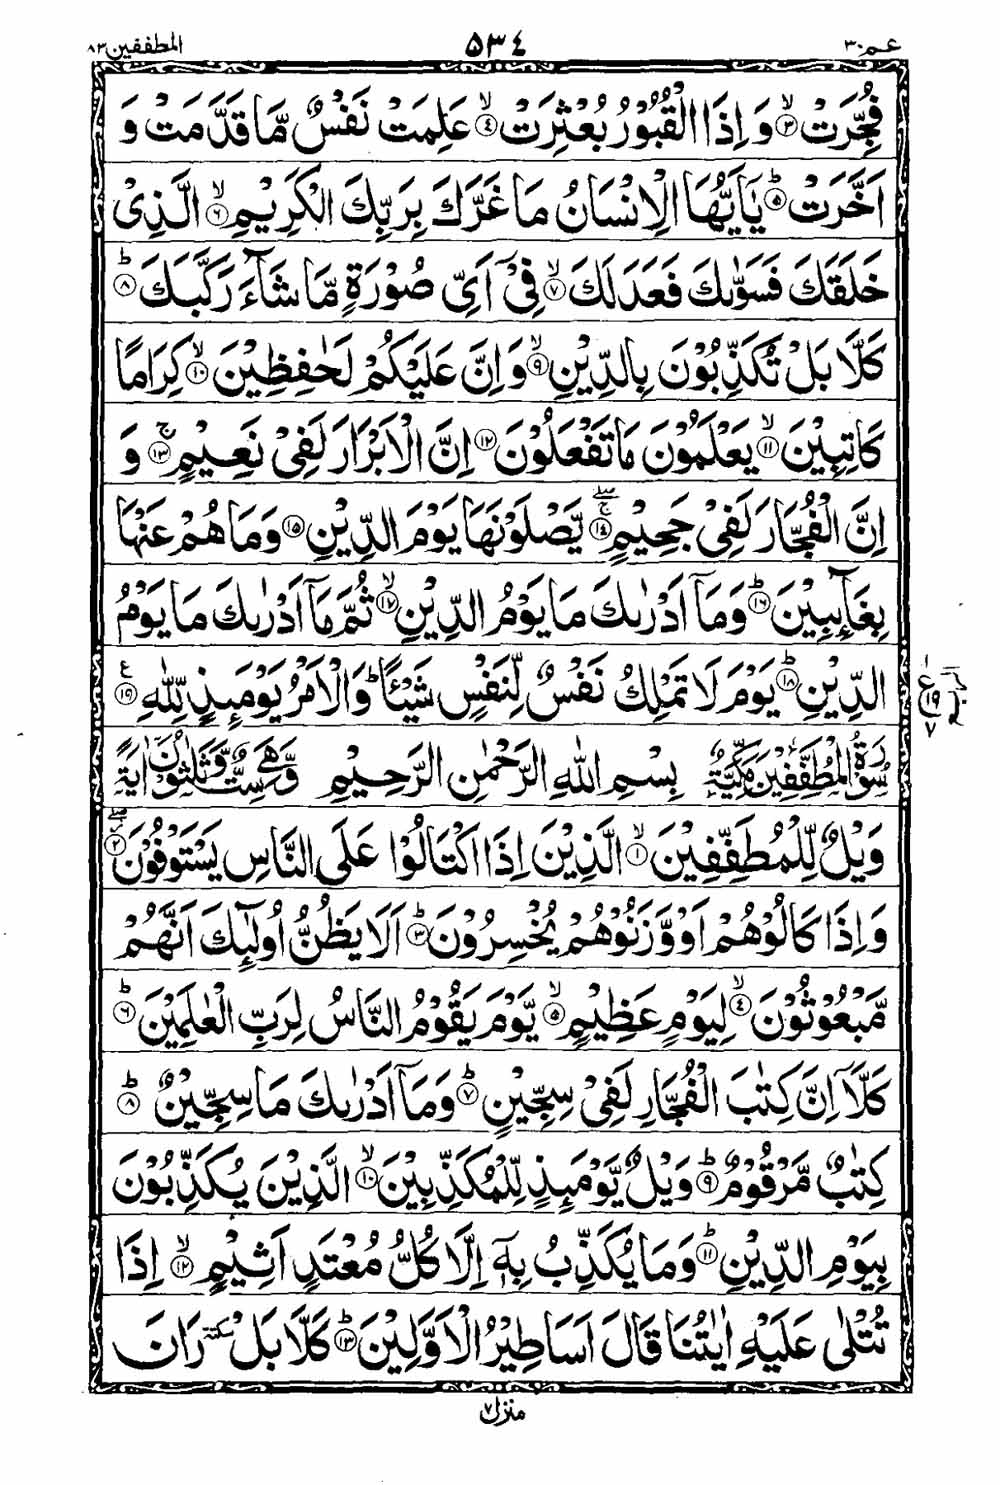 عم ٣٠ ٥٣٤ المطففين ٨٣
فُجِّرَتْ ۙ﴿٣﴾ وَ اِذَا الْقُبُوْرُ بُعْثِرَتْ ۙ﴿٤﴾ عَلِمَتْ نَفْسٌ مَّا قَدَّمَتْ وَ
اَخَّرَتْ ؕ﴿٥﴾ يٰۤاَيُّهَا الْاِنْسَانُ مَا غَرَّكَ بِرَبِّكَ الْكَرِيْمِ ۙ﴿٦﴾ الَّذِىْ
خَلَقَكَ فَسَوّٰىكَ فَعَدَلَكَ ۙ﴿٧﴾ فِىْۤ اَىِّ صُوْرَةٍ مَّا شَآءَ رَكَّبَكَ ؕ﴿٨﴾
كَلَّا بَلْ تُكَذِّبُوْنَ بِالدِّيْنِ ۙ﴿٩﴾ وَ اِنَّ عَلَيْكُمْ لَحٰفِظِيْنَ ۙ﴿١٠﴾ كِرَامًا
كَاتِبِيْنَ ۙ﴿١١﴾ يَعْلَمُوْنَ مَا تَفْعَلُوْنَ ﴿١٢﴾ اِنَّ الْاَبْرَارَ لَفِىْ نَعِيْمٍ ۚ﴿١٣﴾ وَ
اِنَّ الْفُجَّارَ لَفِىْ جَحِيْمٍ ۚۖ﴿١٤﴾ يَّصْلَوْنَهَا يَوْمَ الدِّيْنِ ﴿١٥﴾ وَمَا هُمْ عَنْهَا
بِغَآئِبِيْنَ ؕ﴿١٦﴾ وَمَاۤ اَدْرٰىكَ مَا يَوْمُ الدِّيْنِ ۙ﴿١٧﴾ ثُمَّ مَاۤ اَدْرٰىكَ مَا يَوْمُ
الدِّيْنِ ؕ﴿١٨﴾ يَوْمَ لَا تَمْلِكُ نَفْسٌ لِّنَفْسٍ شَيْـًٔا ؕ وَالْاَمْرُ يَوْمَئِذٍ لِّلّٰهِ ﴿١٩﴾ ع
ع ١٩ ٧
سُوْرَةُ الْمُطَفِّفِيْنَ مَكِّيَّةٌ بِسْمِ اللّٰهِ الرَّحْمٰنِ الرَّحِيْمِ وَّهِىَ سِتٌّ وَّثَلٰثُوْنَ اٰيَةً
وَيْلٌ لِّلْمُطَفِّفِيْنَ ۙ﴿١﴾ الَّذِيْنَ اِذَا اكْتَالُوْا عَلَى النَّاسِ يَسْتَوْفُوْنَ ؗۖ﴿٢﴾
وَ اِذَا كَالُوْهُمْ اَوْ وَّزَنُوْهُمْ يُخْسِرُوْنَ ؕ﴿٣﴾ اَلَا يَظُنُّ اُولٰٓئِكَ اَنَّهُمْ
مَّبْعُوْثُوْنَ ۙ﴿٤﴾ لِيَوْمٍ عَظِيْمٍ ۙ﴿٥﴾ يَّوْمَ يَقُوْمُ النَّاسُ لِرَبِّ الْعٰلَمِيْنَ ؕ﴿٦﴾
كَلَّاۤ اِنَّ كِتٰبَ الْفُجَّارِ لَفِىْ سِجِّيْنٍ ؕ﴿٧﴾ وَمَاۤ اَدْرٰىكَ مَا سِجِّيْنٌ ؕ﴿٨﴾
كِتٰبٌ مَّرْقُوْمٌ ؕ﴿٩﴾ وَيْلٌ يَّوْمَئِذٍ لِّلْمُكَذِّبِيْنَ ۙ﴿١٠﴾ الَّذِيْنَ يُكَذِّبُوْنَ
بِيَوْمِ الدِّيْنِ ؕ﴿١١﴾ وَمَا يُكَذِّبُ بِهٖۤ اِلَّا كُلُّ مُعْتَدٍ اَثِيْمٍ ۙ﴿١٢﴾ اِذَا
تُتْلٰى عَلَيْهِ اٰيٰتُنَا قَالَ اَسَاطِيْرُ الْاَوَّلِيْنَ ؕ﴿١٣﴾ كَلَّا بَلْ سكتة رَانَ
منزل ٧